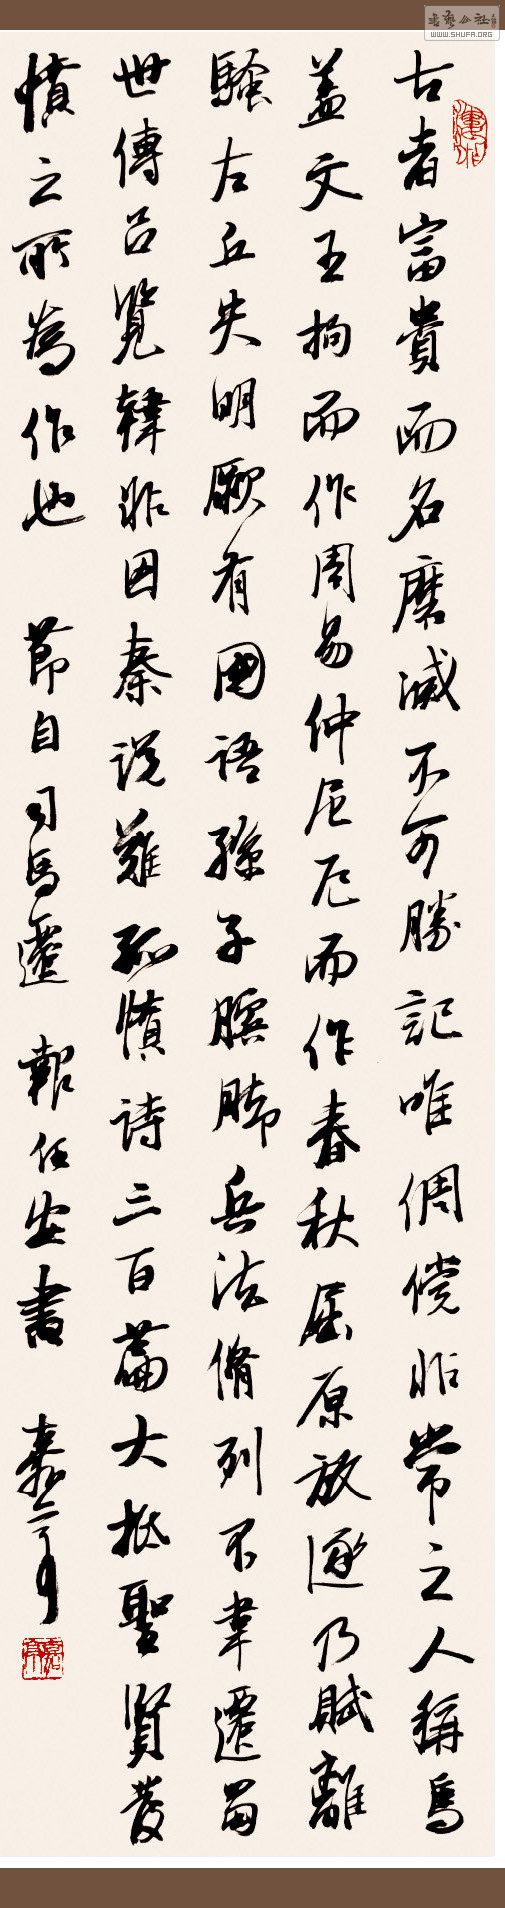 古者富貴而名磨滅不可勝記唯倜儻非常之人稱焉
蓋文王拘而作周易仲尼厄而作春秋屈原放逐乃賦離
騷左丘失明厥有國語孫子臏腳兵法脩列不韋遷蜀
世傳呂覽韓非囚秦說難孤憤詩三百篇大抵聖賢發
憤之所為作也 節自司馬遷 報任安書
书艺公社
WWW.SHUFA.ORG